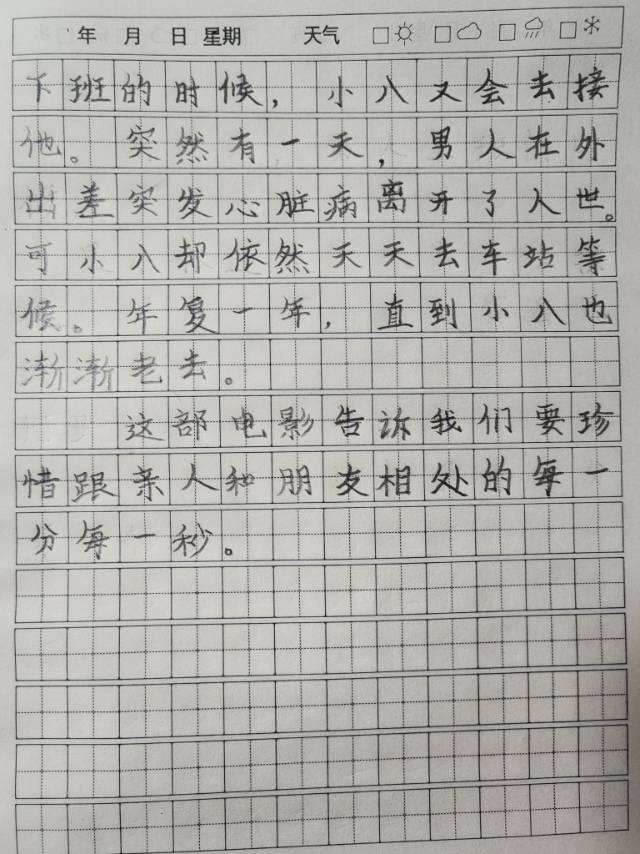 年 月 日 星期 天气
下班的时候，小八又会去接
他。突然有一天，男人在外
出差突发心脏病离开了人世。
可小八却依然天天去车站等
候。年复一年，直到小八也
渐渐老去。
这部电影告诉我们要珍
惜跟亲人和朋友相处的每一
分每一秒。